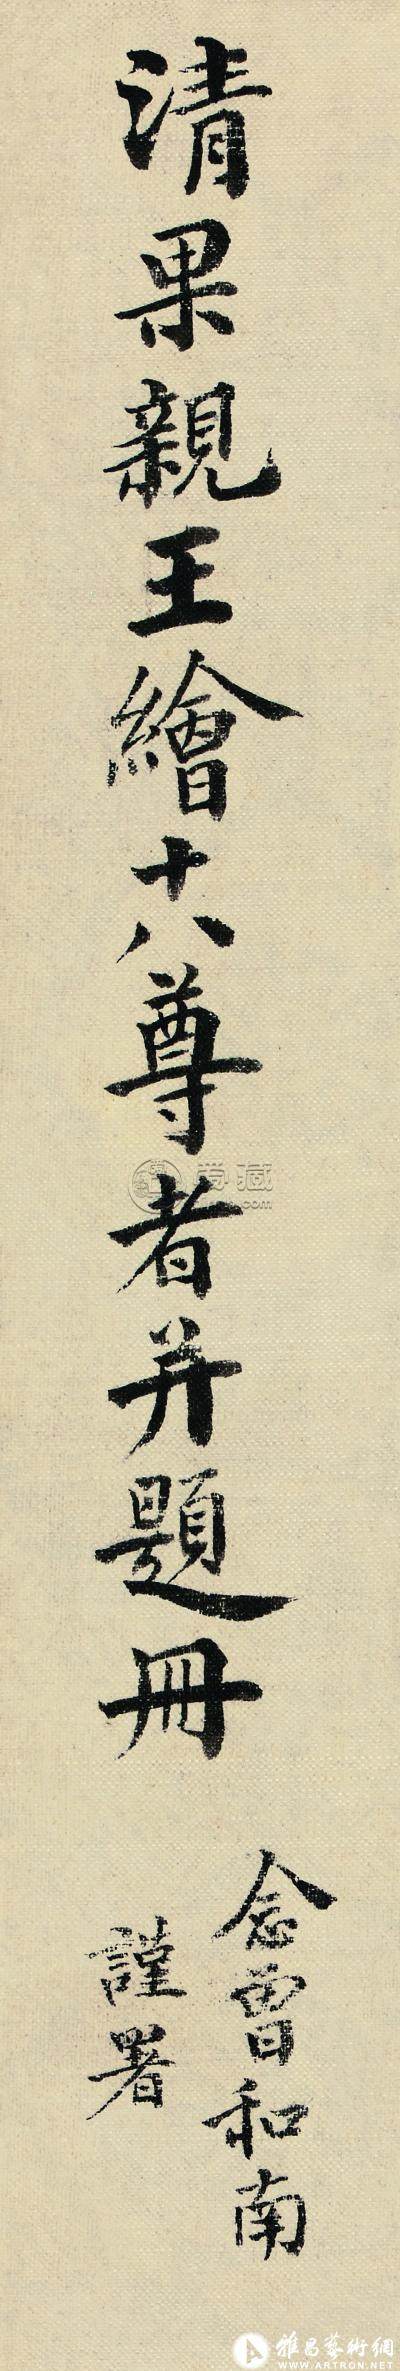 清果親王繪十八尊者并題冊
念曾和南
謹署
雅昌藝術網
WWW.ARTRON.NET